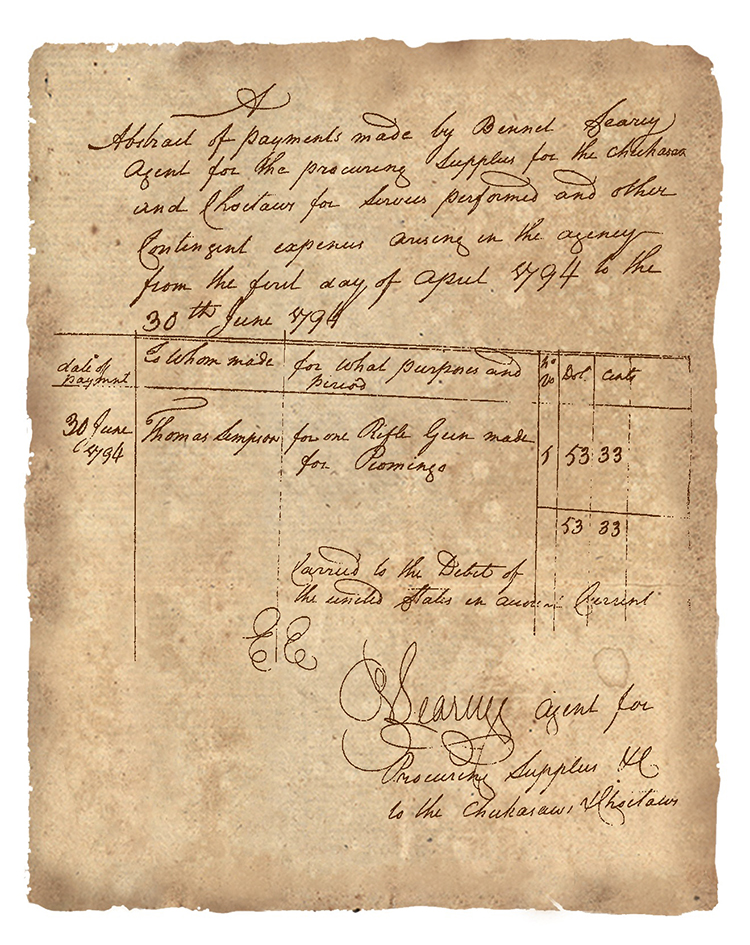 A
Abstract of payments made by Bennet Searcy
Agent for the procuring Supplies for the Chickasaw
and Choctaws for Services performed and other
Contingent expences arising in the agency
from the first day of April 1794 to the
30th June 1794
date of payment To Whom made for what purposes and period No Vo Dol Cents
30 June 1794 Thomas Simpson for one Rifle Gun made for Piomingo 1 53 33
53 33
Carried to the Debit of
the united States in account Current
E E
BSearcy agent for
Procuring Supplies &C
to the Chickasaws & Choctaws